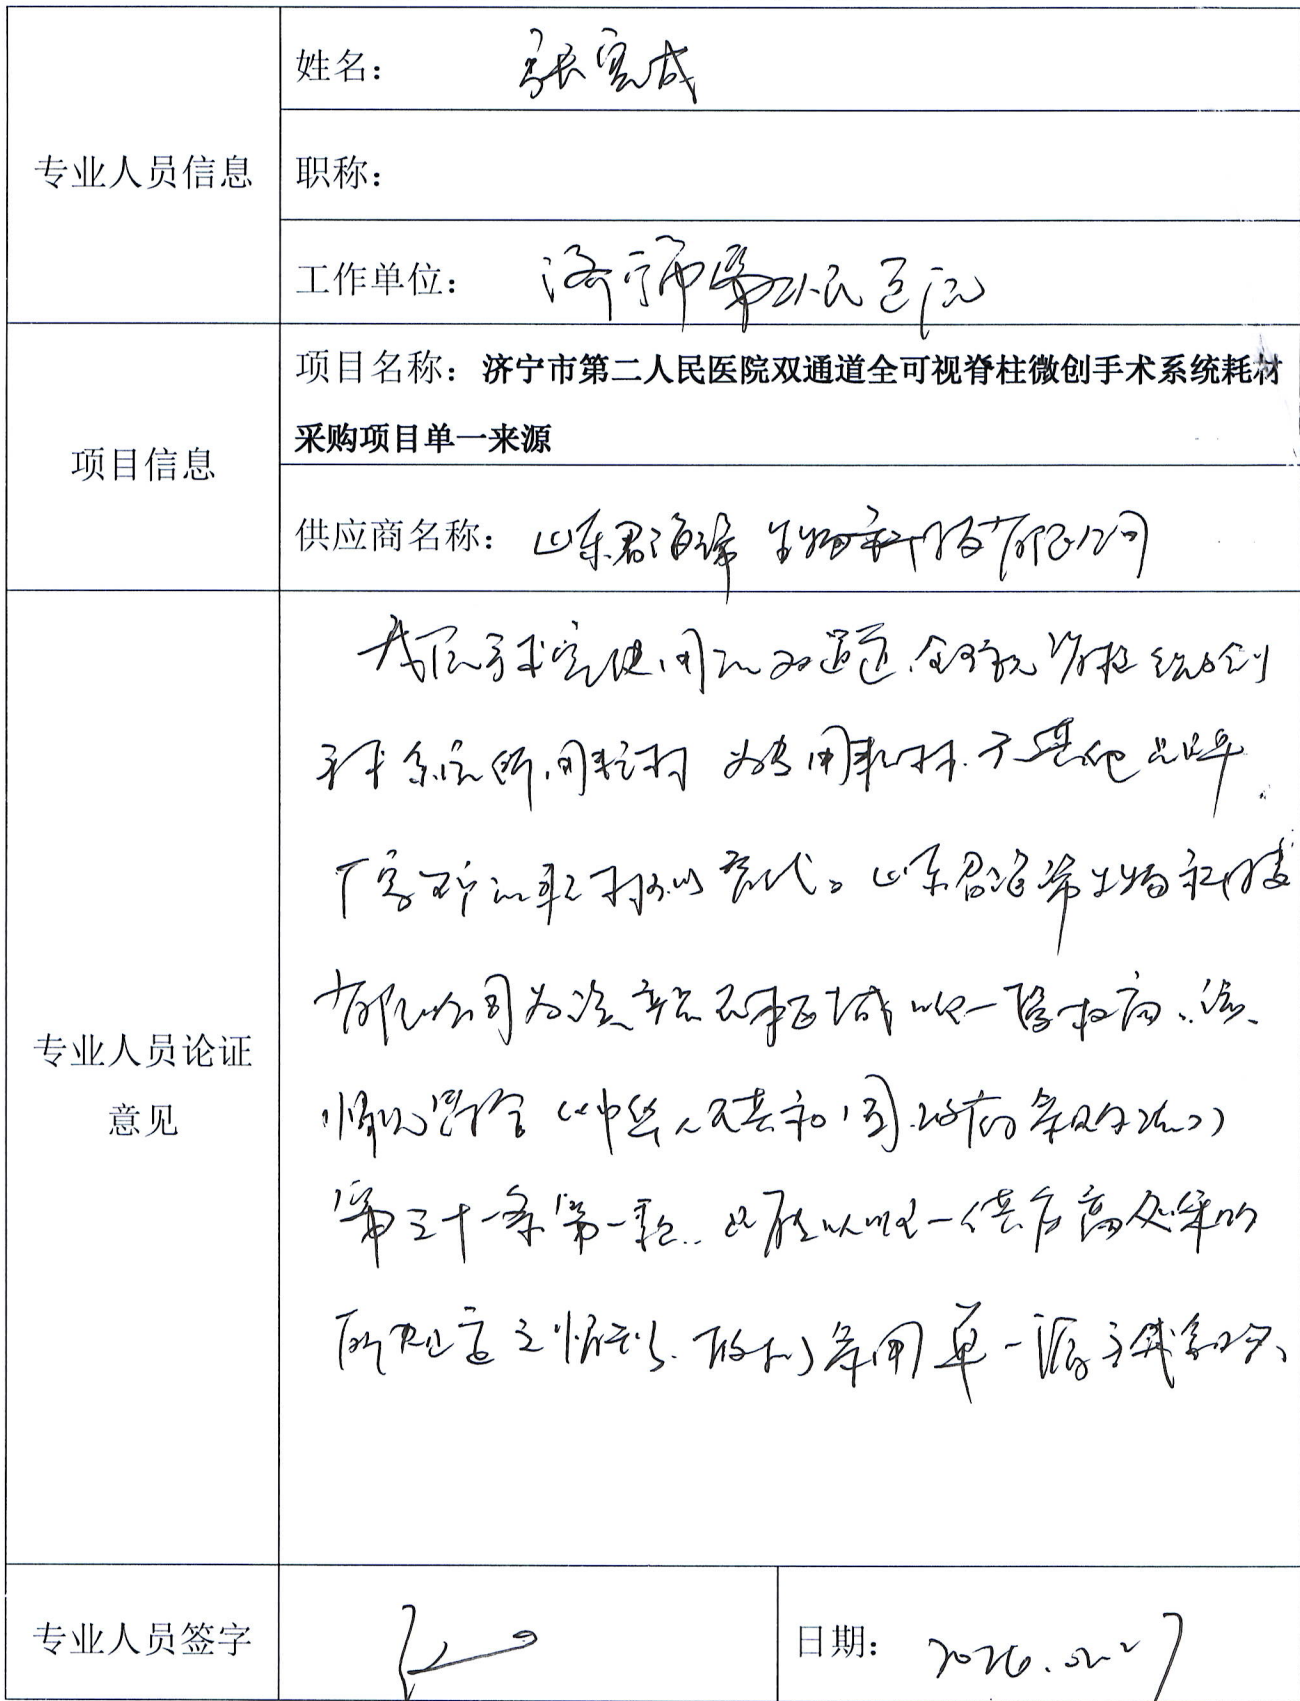 专业人员信息
姓名：张宪成
职称：
工作单位：济宁市第二人民医院
项目信息
项目名称：济宁市第二人民医院双通道全可视脊柱微创手术系统耗材
采购项目单一来源
供应商名称：山东君海 生物科技有限公司
专业人员论证
意见
我院手术室使用的双通道全可视脊柱微创
手术系统所用耗材为专用耗材.无其他品牌
厂家生产的耗材可以替代。山东君海 生物科技
有限公司为该产品在本区域唯一授权商.该
情况符合《中华人民共和国政府采购法》
第三十一条第一款..只能从唯一供应商处采购
所规定之情形.故 采用单一 源方式采购、
专业人员签字
日期：